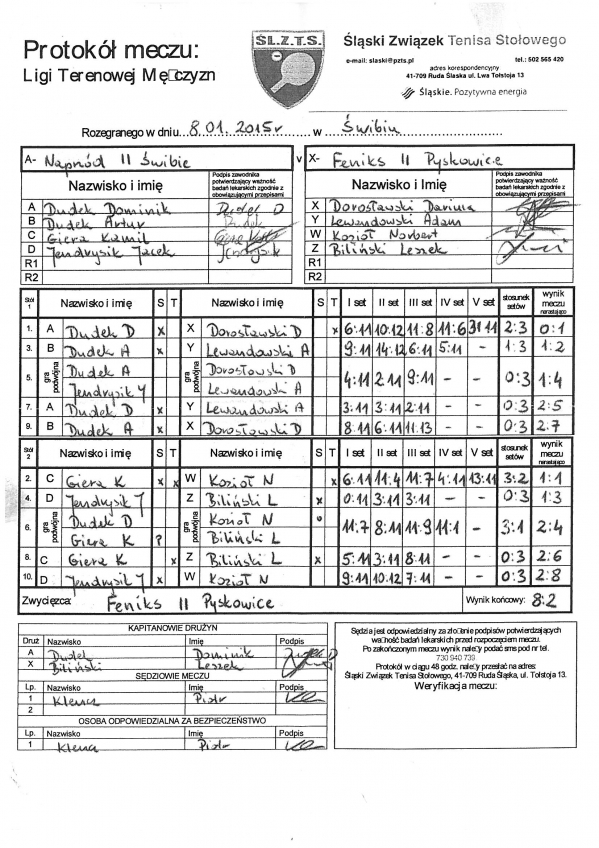 Protokół meczu:
Ligi Terenowej Mę□czyzn
ŚL.Z.T.S.
Śląski Związek Tenisa Stołowego
e-mail: slaski@pzts.pl tel.: 502 565 420
adres korespondencyjny
41-709 Ruda Śląska ul. Lwa Tołstoja 13
Śląskie. Pozytywna energia
Rozegranego w dniu 8.01.2015r w Świbiu
A- Naprzód II Świbie v X- Feniks II Pyskowice
Nazwisko i imię Podpis zawodnika potwierdzający ważność badań lekarskich zgodnie z obowiązującymi przepisami Nazwisko i imię Podpis zawodnika potwierdzający ważność badań lekarskich zgodnie z obowiązującymi przepisami
A Dudek Dominik Dudek D X Dorosławski Dariusz
B Dudek Artur Dudek Y Lewandowski Adam
C Giera Kamil W Kozioł Norbert
D Jendrysik Jacek Z Biliński Leszek
R1 R1
R2 R2
Stół 1 Nazwisko i imię S T Nazwisko i imię S T I set II set III set IV set V set stosunek setów wynik meczu narastająco
1. A Dudek D x X Dorosławski D x 6:11 10:12 11:8 11:6 3:11 2:3 0:1
3. B Dudek A x Y Lewandowski A 9:11 14:12 6:11 5:11 - 1:3 1:2
5. gra podwójna Dudek A gra podwójna Dorosławski D 4:11 2:11 9:11 - - 0:3 1:4
Jendrysik J Lewandowski A
7. A Dudek D x Y Lewandowski A 3:11 3:11 2:11 - - 0:3 2:5
9. B Dudek A x X Dorosławski D 8:11 6:11 11:13 - - 0:3 2:7
Stół 2 Nazwisko i imię S T Nazwisko i imię S T I set II set III set IV set V set stosunek setów wynik meczu narastająco
2. C Giera K x x W Kozioł N x 6:11 11:4 11:7 4:11 13:11 3:2 1:1
4. D Jendrysik J Z Biliński L x 0:11 3:11 3:11 - - 0:3 1:3
6. gra podwójna Dudek D gra podwójna Kozioł N 11:7 8:11 11:9 11:1 - 3:1 2:4
Giera K ? Biliński L
8. C Giera K x Z Biliński L x 5:11 3:11 8:11 - - 0:3 2:6
10. D Jendrysik J x W Kozioł N 9:11 10:12 7:11 - - 0:3 2:8
Zwycięzca: Feniks II Pyskowice Wynik końcowy: 8:2
KAPITANOWIE DRUŻYN
Druż Nazwisko Imię Podpis
A Dudek Dominik Dudek D
X Biliński Leszek
SĘDZIOWIE MECZU
Lp. Nazwisko Imię Podpis
1 Klencz Piotr
2
OSOBA ODPOWIEDZIALNA ZA BEZPIECZEŃSTWO
Lp. Nazwisko Imię Podpis
1 Klencz Piotr
Sędzia jest odpowiedzialny za zło□enie podpisów potwierdzających
wa□ność badań lekarskich przed rozpoczęciem meczu.
Po zakończonym meczu wynik nale□y podać sms pod nr tel.
730 940 739
Protokół w ciągu 48 godz. nale□y przesłać na adres:
Śląski Związek Tenisa Stołowego, 41-709 Ruda Śląska, ul. Tołstoja 13.
Weryfikacja meczu: